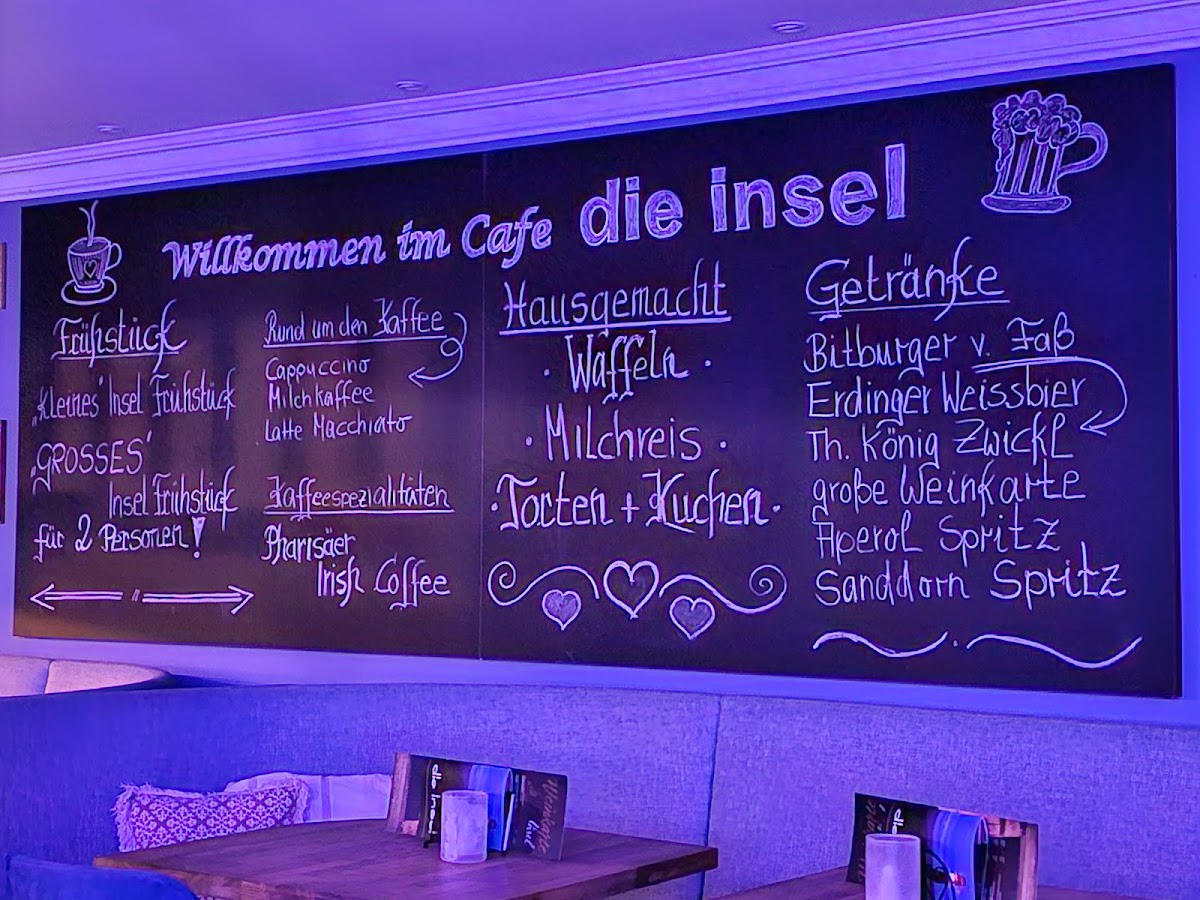 Willkommen im Cafe die insel
Frühstück
„Kleines' Insel Frühstück
„GROSSES'
Insel Frühstück
für 2 Personen!
Rund um den Kaffee
Cappuccino
Milchkaffee
Latte Macchiato
Kaffeespezialitäten
Pharisäer
Irish Coffee
Hausgemacht
· Waffeln ·
· Milchreis ·
· Torten + Kuchen ·
Getränke
Bitburger v. Faß
Erdinger Weissbier
Th. König Zwickl
große Weinkarte
Aperol Spritz
Sanddorn Spritz
die insel